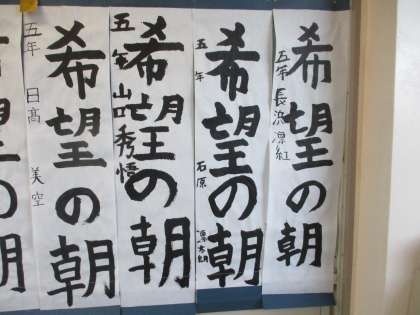 希望の朝
五年 長浜凛紅
希望の朝
五年 石原
希望の朝
五年 山口秀悟
希望の朝
五年 日高 美空
の朝